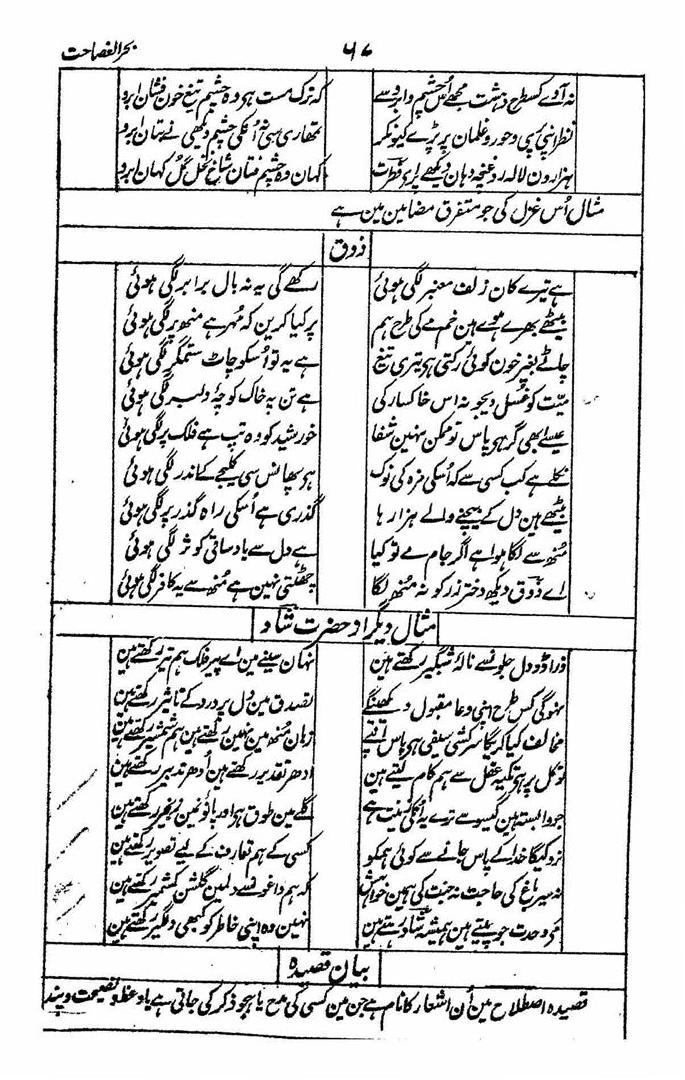 بحر الفصاحت
۶۷
نہ آوے کسطرح دہشت مجھے اُس چشم و ابرو سے کہ ترک مست ہی وہ چشم تیغ خون فشان ابرو
نظر اپنی پری و حور و غلمان پر پڑے کیونکر تمھاری سی نہ اُنکی چشم دیکھی نے بتان ابرو
ہزارون لالہ رو غنچہ دہان دیکھے کہان وہ چشم فتان شاخ نخل گل کہان ابرو
مثال اُس غزل کی جو متفرق مضامین مین ہے
ذوق
ہے تیرے کان زلف معنبر لگی ہوئی رکھے گی یہ نہ بال برابر لگی ہوئی
بیٹھے بھرے ہوے ہین خم مے کی طرح ہم پر کیا کرین کہ مُہر ہے منھ پر لگی ہوئی
چاٹے بغیر خون کوئی رکتی ہی تیری تیغ ہے یہ تو اُسکو چاٹ ستمگر لگی ہوئی
میّت کو غُسل دیجو نہ اس خاکسار کی ہے تن پہ خاک کوچۂ دلبر لگی ہوئی
عیسے بھی گر ہی پاس تو ممکن نہین شفا خورشید کو وہ تپ ہے فلک پر لگی ہوئی
نکلے ہے کب کسی سے کہ اُسکی مژہ کی نوک ہی پھانس سی کلیجے کے اندر لگی ہوئی
بیٹھے ہین دل کے بیچنے والے ہزارہا گذری ہے اُسکی راہ گذر پر لگی ہوئی
مُنھ سے لگا ہوا ہے اگر جام مے تو کیا ہے دل سے یاد ساقی کوثر لگی ہوئی
اے ذوق دیکھ دختر رز کو نہ مُنھ لگا چھٹتی نہین ہے مُنھ سے یہ کافر لگی ہوئی
مثال دیگر از حضرت شاد
ذرا ڈر دل جلونسے نالۂ شبگیر رکھتے ہین نہان سینے مین اے پیر فلک ہم تیر رکھتے ہین
نہوگی کس طرح اپنی دعا مقبول دیکھینگے تصدق مین دل پر درد کے تاثیر رکھتے ہین
مخالف کیا کریگا سرکشی سیفی ہی پاس اپنے زبان مُنھ مین نہین رکھتے ہین ہم شمشیر رکھتے ہین
توکل پر ہی تکیہ عقل سے ہم کام لیتے ہین ادھر تقدیر رکھتے ہین اُدھر تدبیر رکھتے ہین
جو وابستہ ہین گیسو سے ترے یہ اُنکی زینت ہے گلے مین طوق ہی اور پاؤنمین زنجیر رکھتے ہین
نہ روکیگا خدا کے پاس جانے سے کوئی ہمکو کسی کے ہم تعارف کے لیے تصویر رکھتے ہین
نہ سیر باغ کی حاجت نہ جنت کی ہمین خواہش کہ ہم داغونسے دلمین گلشن کشمیر رکھتے ہین
مے وحدت جو پیتے ہین ہمیشہ شاد رہتے ہین نہین وہ اپنی خاطر کو کبھی دلگیر رکھتے ہین
بیان قصیدہ
قصیدہ اصطلاح مین اُن اشعار کا نام ہے جن مین کسی کی مدح یا ہجو ذکر کی جاتی ہے یا وعظ و نصیحت و پند